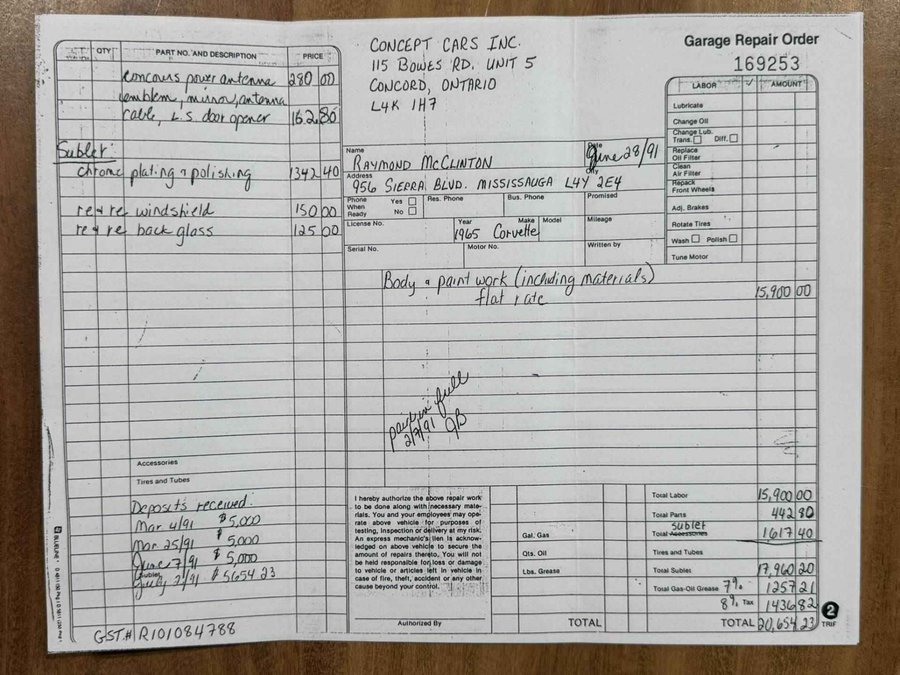 QTY PART NO. AND DESCRIPTION PRICE
concours power antenna 280 00
emblem, mirror, antenna
cable, L.S. door opener 162.80
Sublet:
chrome plating & polishing 1342 40
re & re windshield 150 00
re & re back glass 125 00
Accessories
Tires and Tubes
Deposits received:
Mar 4/91 $5,000
Mar 25/91 $5,000
June 7/91 $5,000
July 2/91 $5654 23
GST# R101084788
CONCEPT CARS INC.
115 BOWES RD. UNIT 5
CONCORD, ONTARIO
L4K 1H7
Garage Repair Order
169253
Name
RAYMOND MCCLINTON
Date
June 28/91
Address
956 SIERRA BLVD. MISSISSAUGA L4Y 2E4
City
Phone When Ready Yes No
Res. Phone
Bus. Phone
Promised
License No.
Year Make Model
1965 Corvette
Mileage
Serial No.
Motor No.
Written by
LABOR ✓ AMOUNT
Lubricate
Change Oil
Change Lub.
Trans. Diff.
Replace
Oil Filter
Clean
Air Filter
Repack
Front Wheels
Adj. Brakes
Rotate Tires
Wash Polish
Tune Motor
Body & paint work (including materials)
flat rate 15,900 00
paid in full
2/7/91 JB
I hereby authorize the above repair work
to be done along with necessary mate-
rials. You and your employees may ope-
rate above vehicle for purposes of
testing, inspection or delivery at my risk.
An express mechanic's lien is acknow-
ledged on above vehicle to secure the
amount of repairs thereto. You will not
be held responsible for loss or damage
to vehicle or articles left in vehicle in
case of fire, theft, accident or any other
cause beyond your control.
Authorized By
Gal. Gas
Qts. Oil
Lbs. Grease
TOTAL
Total Labor 15,900 00
Total Parts 442 80
sublet
Total Accessories 1617 40
Tires and Tubes
Total Sublet 17,960 20
Total Gas-Oil Grease 7% 1257 21
8% Tax 1436 82
TOTAL 20,654 23
2
TRIF